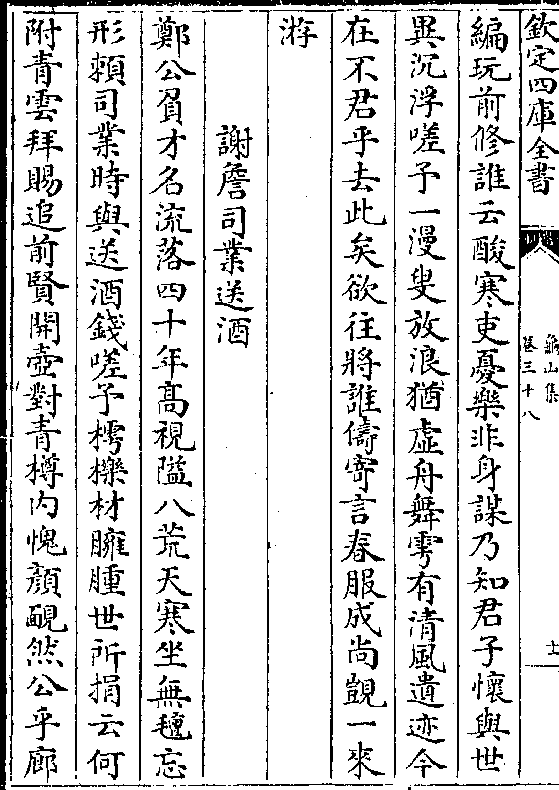 欽定四庫全書
龜山集
卷三十八
十
編玩前修誰云酸寒吏憂樂非身謀乃知君子懷與世
異沉浮嗟予一漫叟放浪猶虛舟舞雩有清風遺迹今
在不君乎去此矣欲往將誰儔寄言春服成尚覬一來
游
謝詹司業送酒
鄭公負才名流落四十年高視隘八荒天寒坐無氊忘
形賴司業時與送酒錢嗟予樗櫟材臃腫世所捐云何
附青雲拜賜追前賢開壺對青樽内愧顔靦然公乎廊